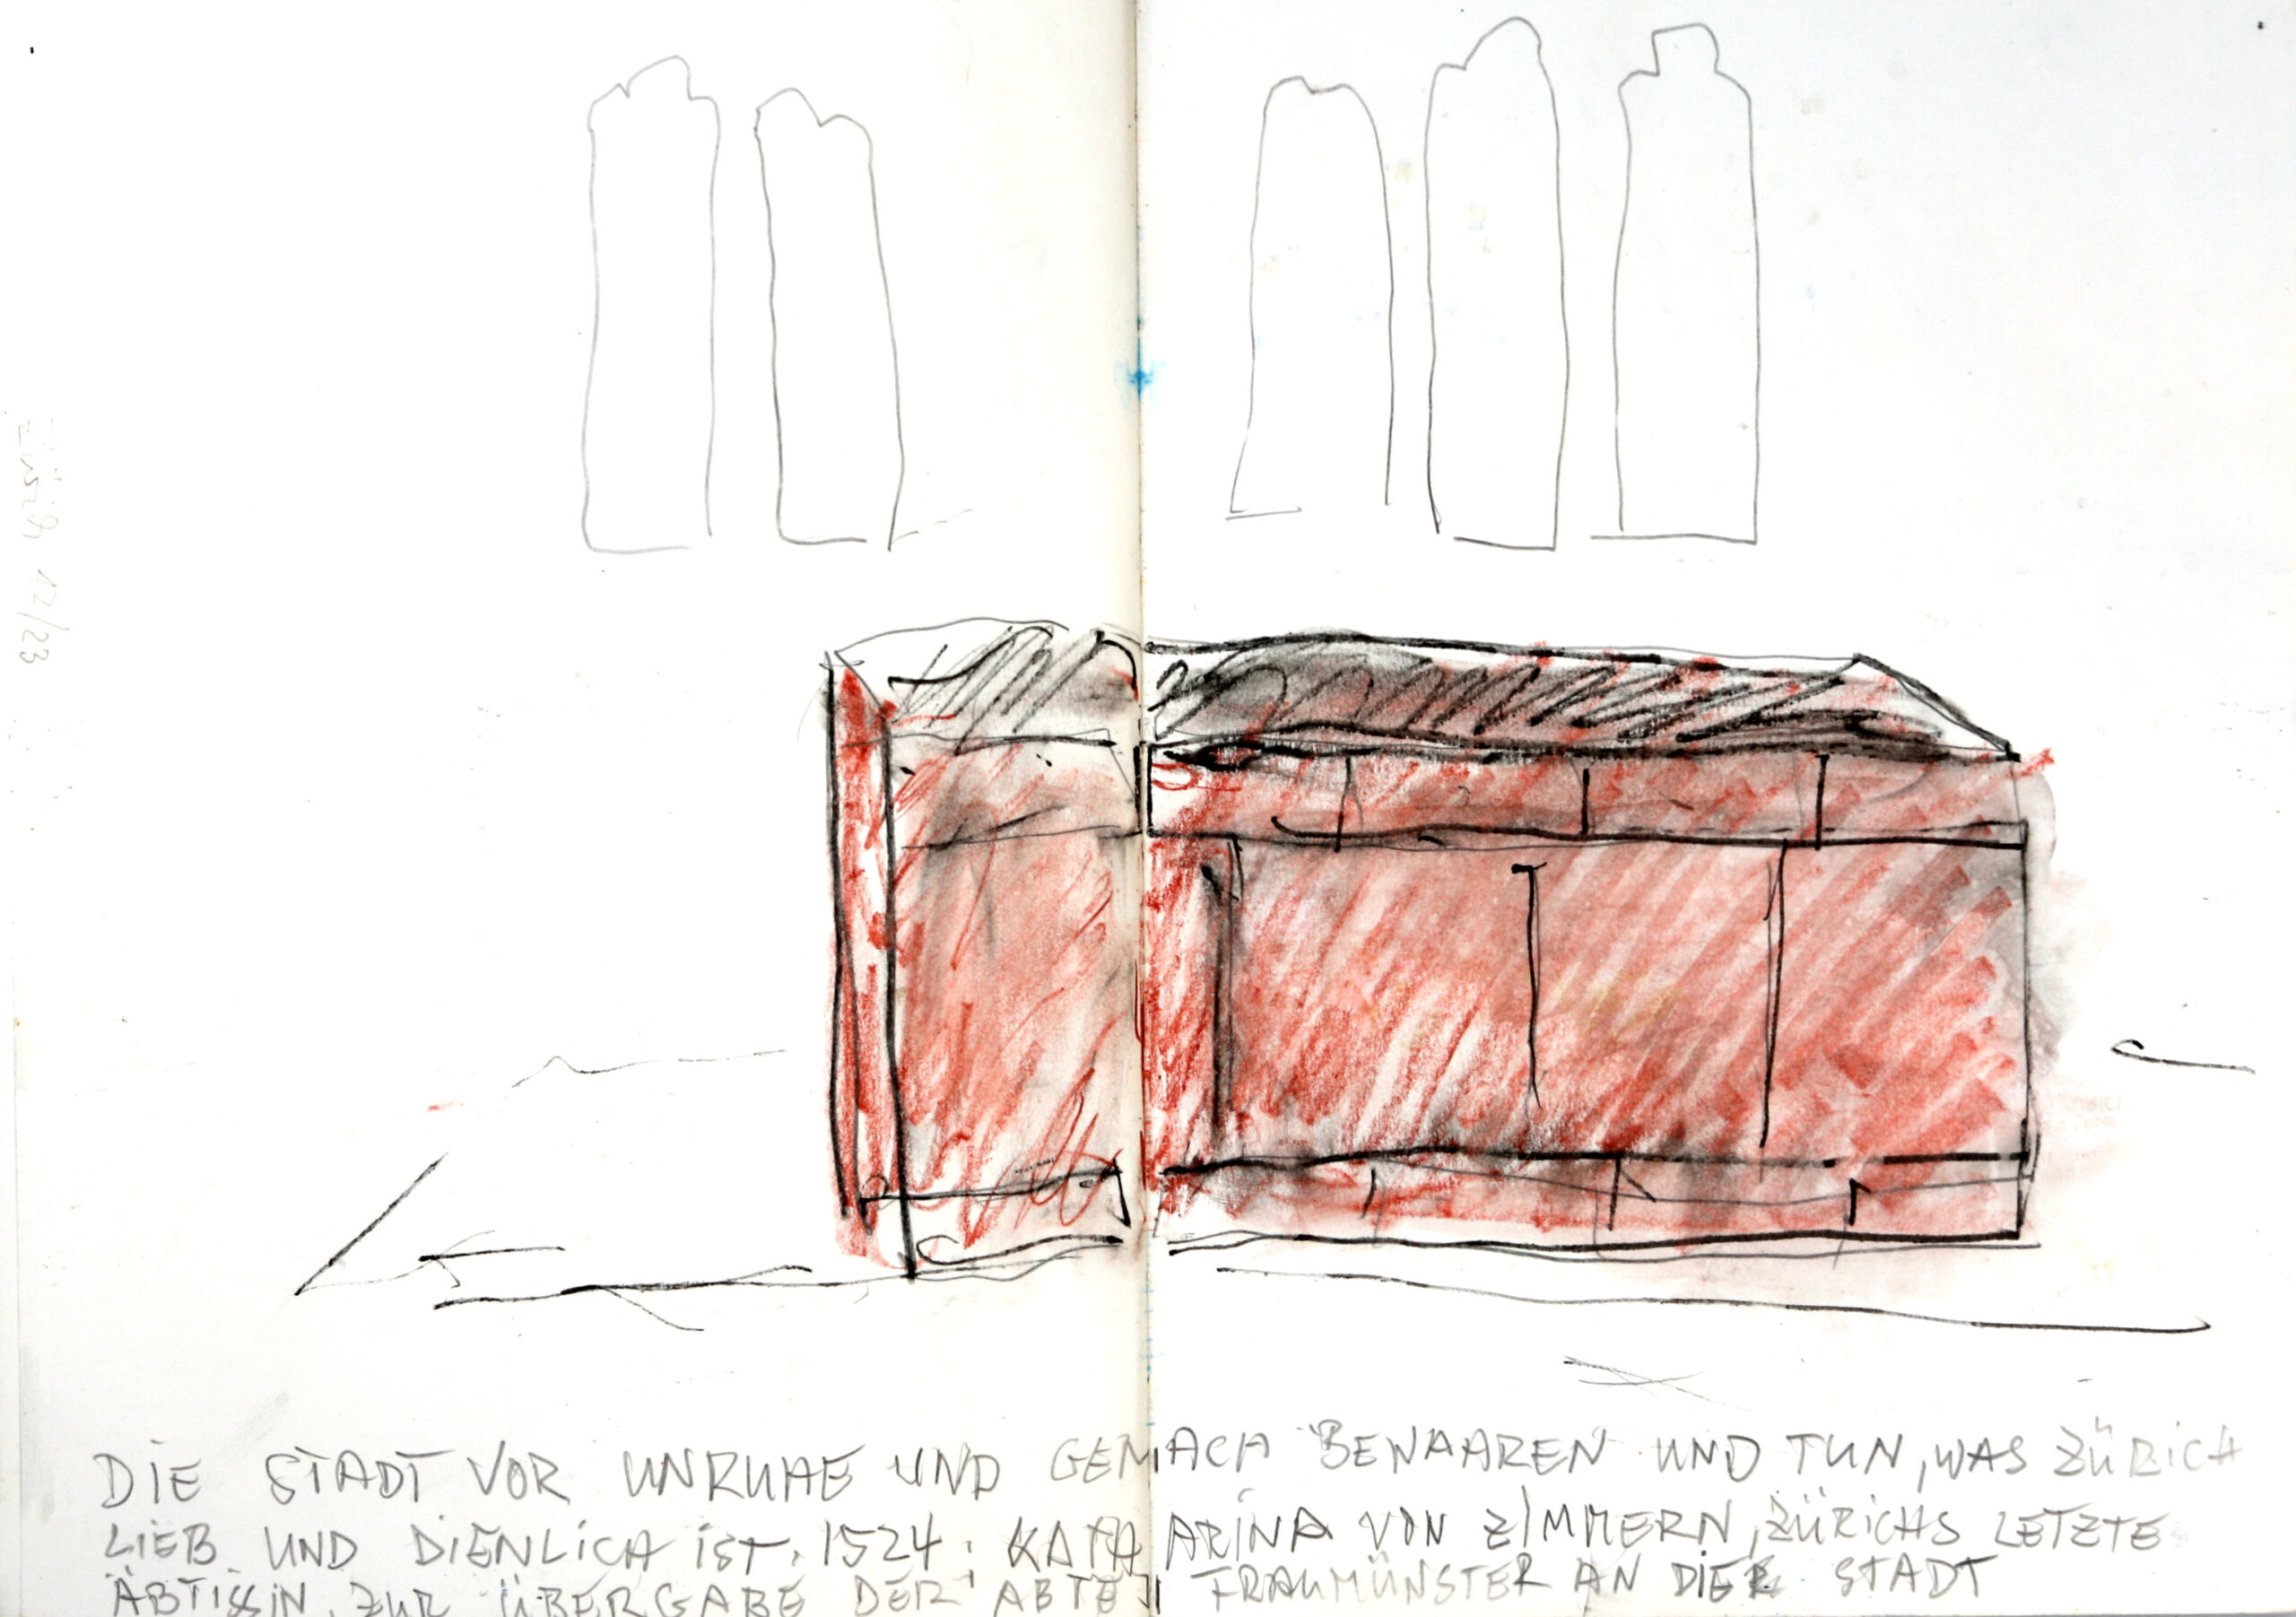 Zürich 12/23
DIE STADT VOR UNRUHE UND GEMACH BEWAHREN UND TUN, WAS ZÜRICH
LIEB UND DIENLICH IST. 1524. KATHARINA VON ZIMMERN, ZÜRICHS LETZTE
ÄBTISSIN, ZUR ÜBERGABE DER ABTEI FRAUMÜNSTER AN DIE STADT